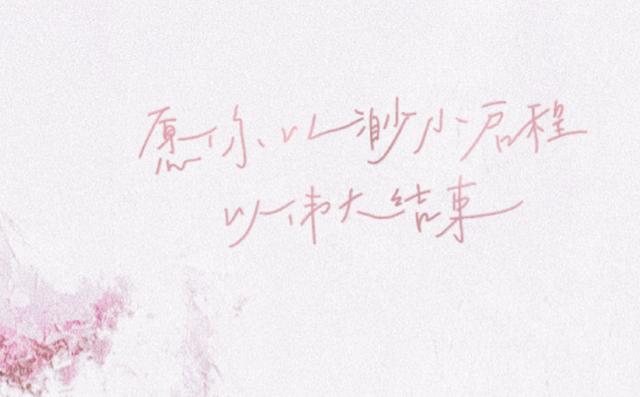 愿你以渺小启程
以伟大结束